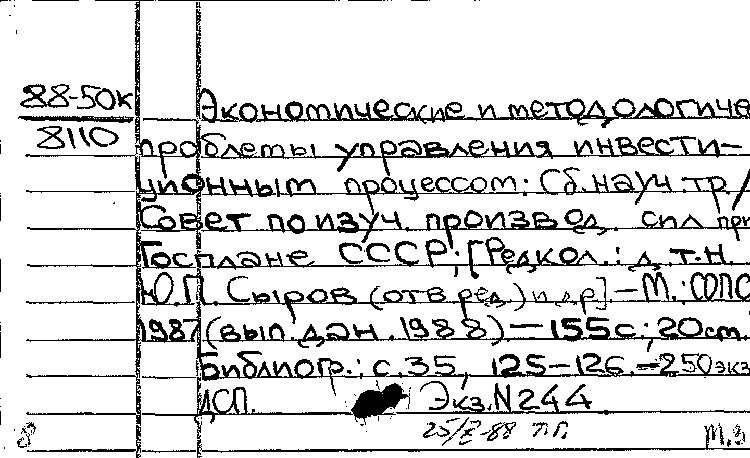 88-50к
8110
Экономические и методологиче
проблемы управления инвести-
ционным процессом: Сб. науч. тр /
Совет по изуч. производ. сил при
Госплане СССР; [Редкол.: д.т.н.
Ю.П. Сыров (отв. ред.) и др] – М.: СОПС
1987 (вып. дан. 1988) – 155 с.; 20 см.
Библиогр.: с. 35, 125-126. – 250 экз
ДСП. Экз. N 244
8 П.Г. т. 3